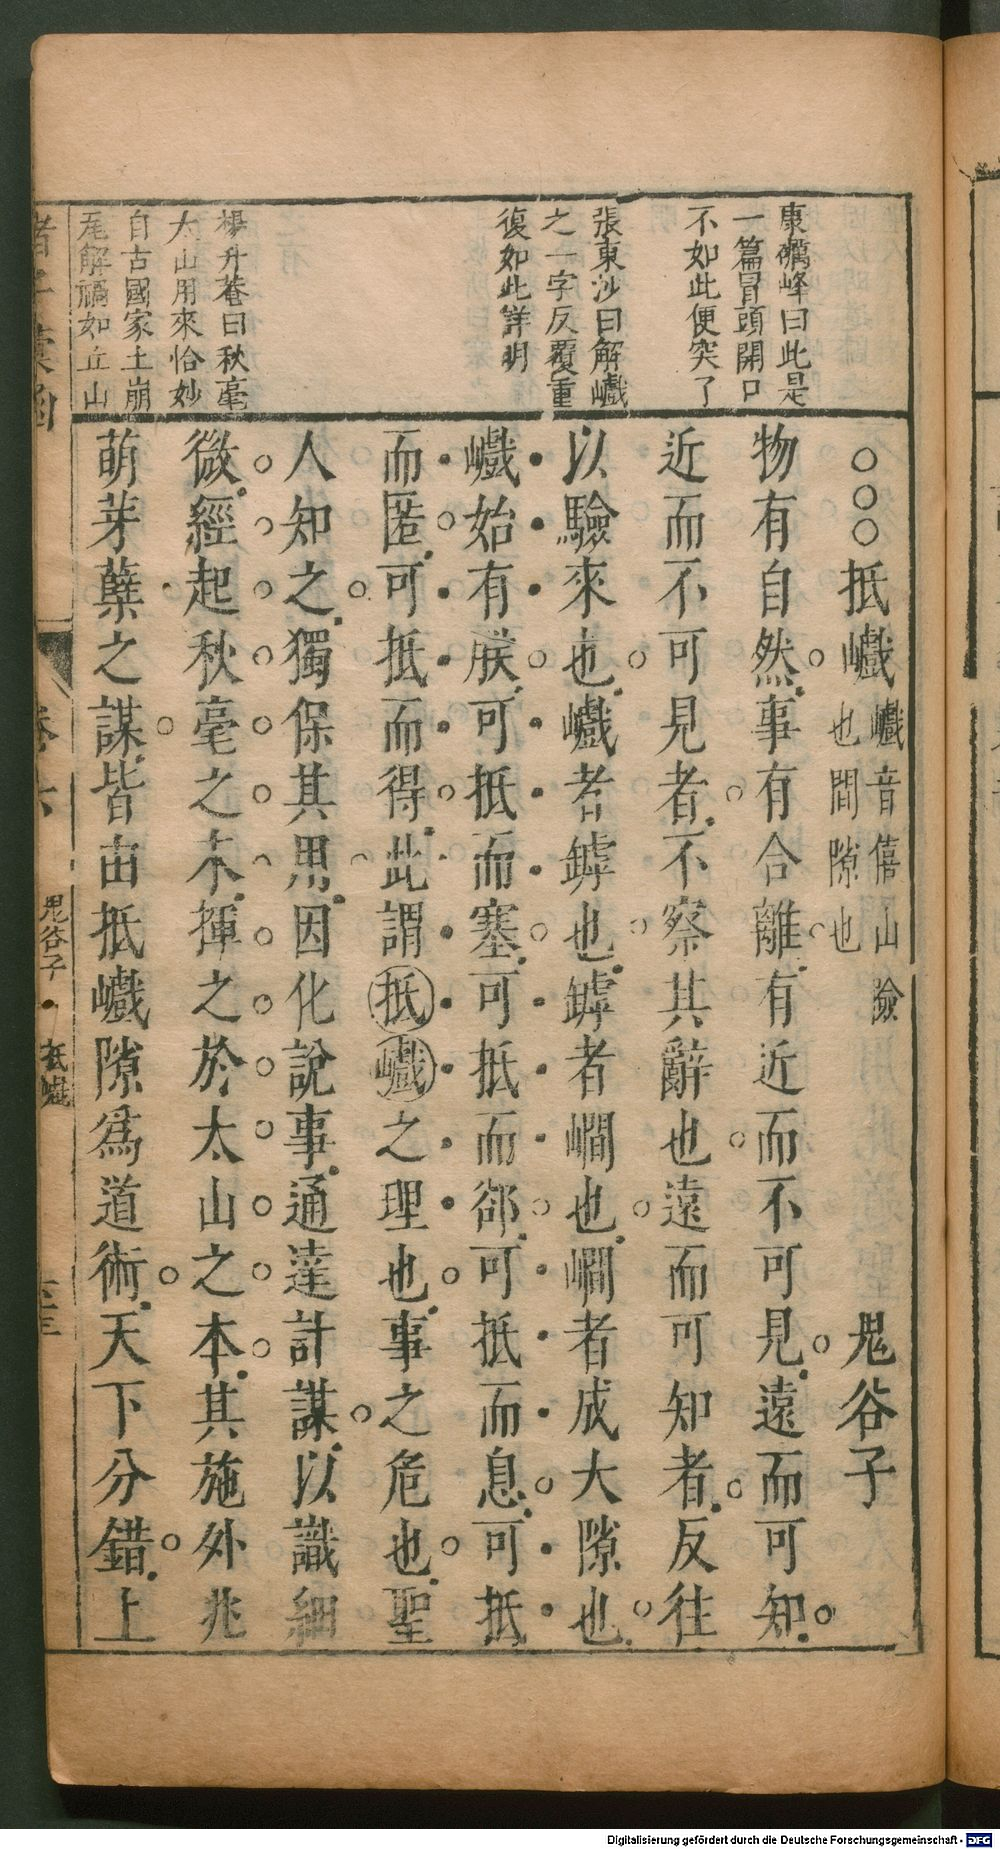 康礪峰曰此是
一篇冒頭開口
不如此便突了
張東沙曰解巇
之一字反覆重
復如此詳明
楊升菴曰秋毫
太山用來恰妙
自古國家土崩
尾解禍如丘山
○○○抵巇 巇音僖山險
也間隙也 鬼谷子
物有自然事有合離有近而不可見遠而可知
近而不可見者不察其辭也遠而可知者反往
以驗來也巇者罅也罅者㵎也㵎者成大隙也
巇始有朕可抵而塞可抵而郤可抵而息可抵
而匿可抵而得此謂抵巇之理也事之危也聖
人知之獨保其用因化說事通達計謀以識細
微經起秋毫之末揮之於太山之本其施外兆
萌芽蘖之謀皆由抵巇隙為道術天下分錯上
鬼谷子 抵巇
Digitalisierung gefördert durch die Deutsche Forschungsgemeinschaft - DFG